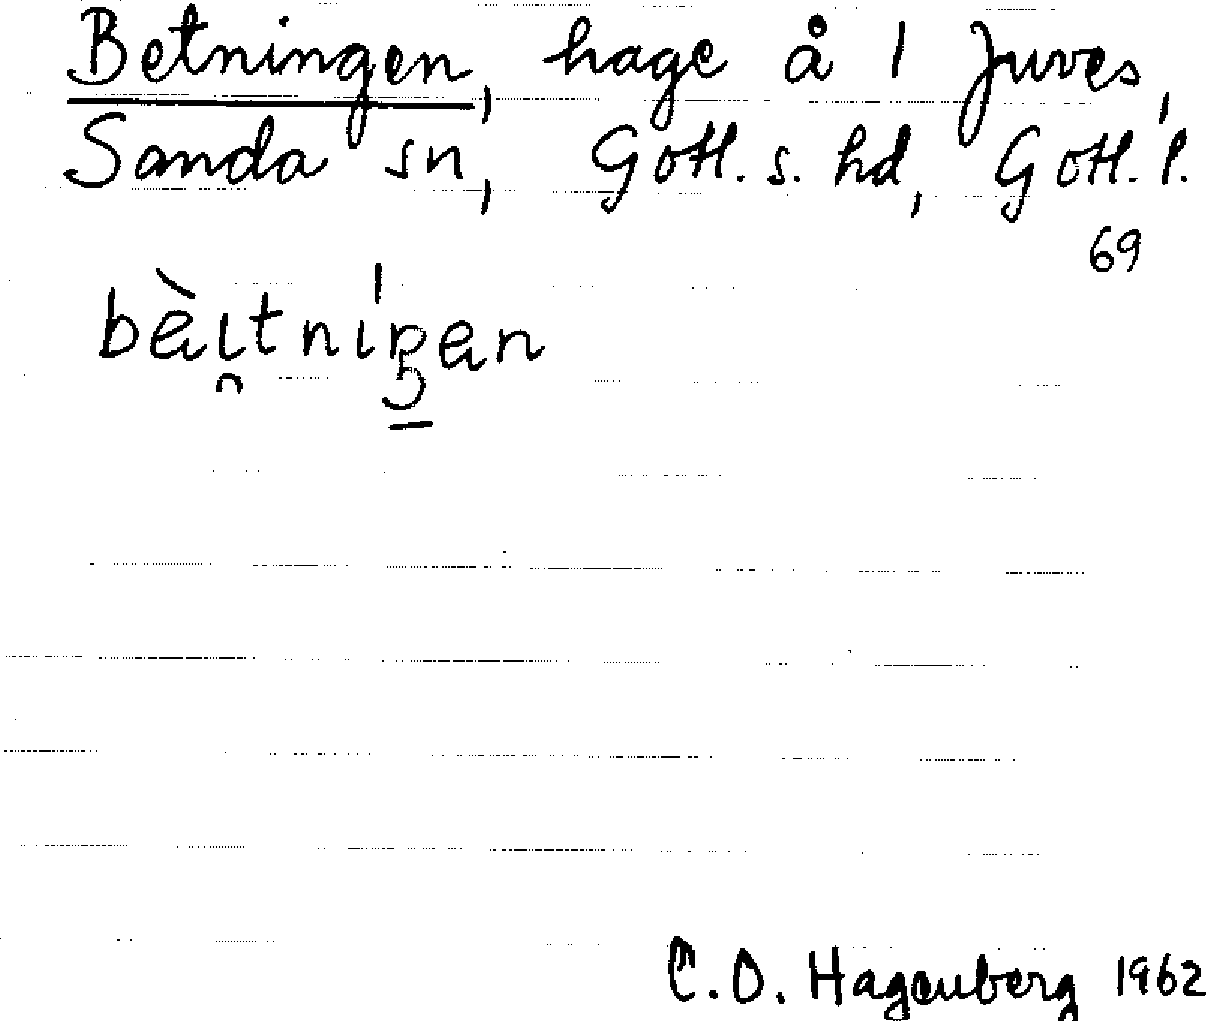 Betningen, hage å 1 Juves,
Sanda sn, Gotl. s. hd, Gotl. l.
69
C.O. Hagenberg 1962